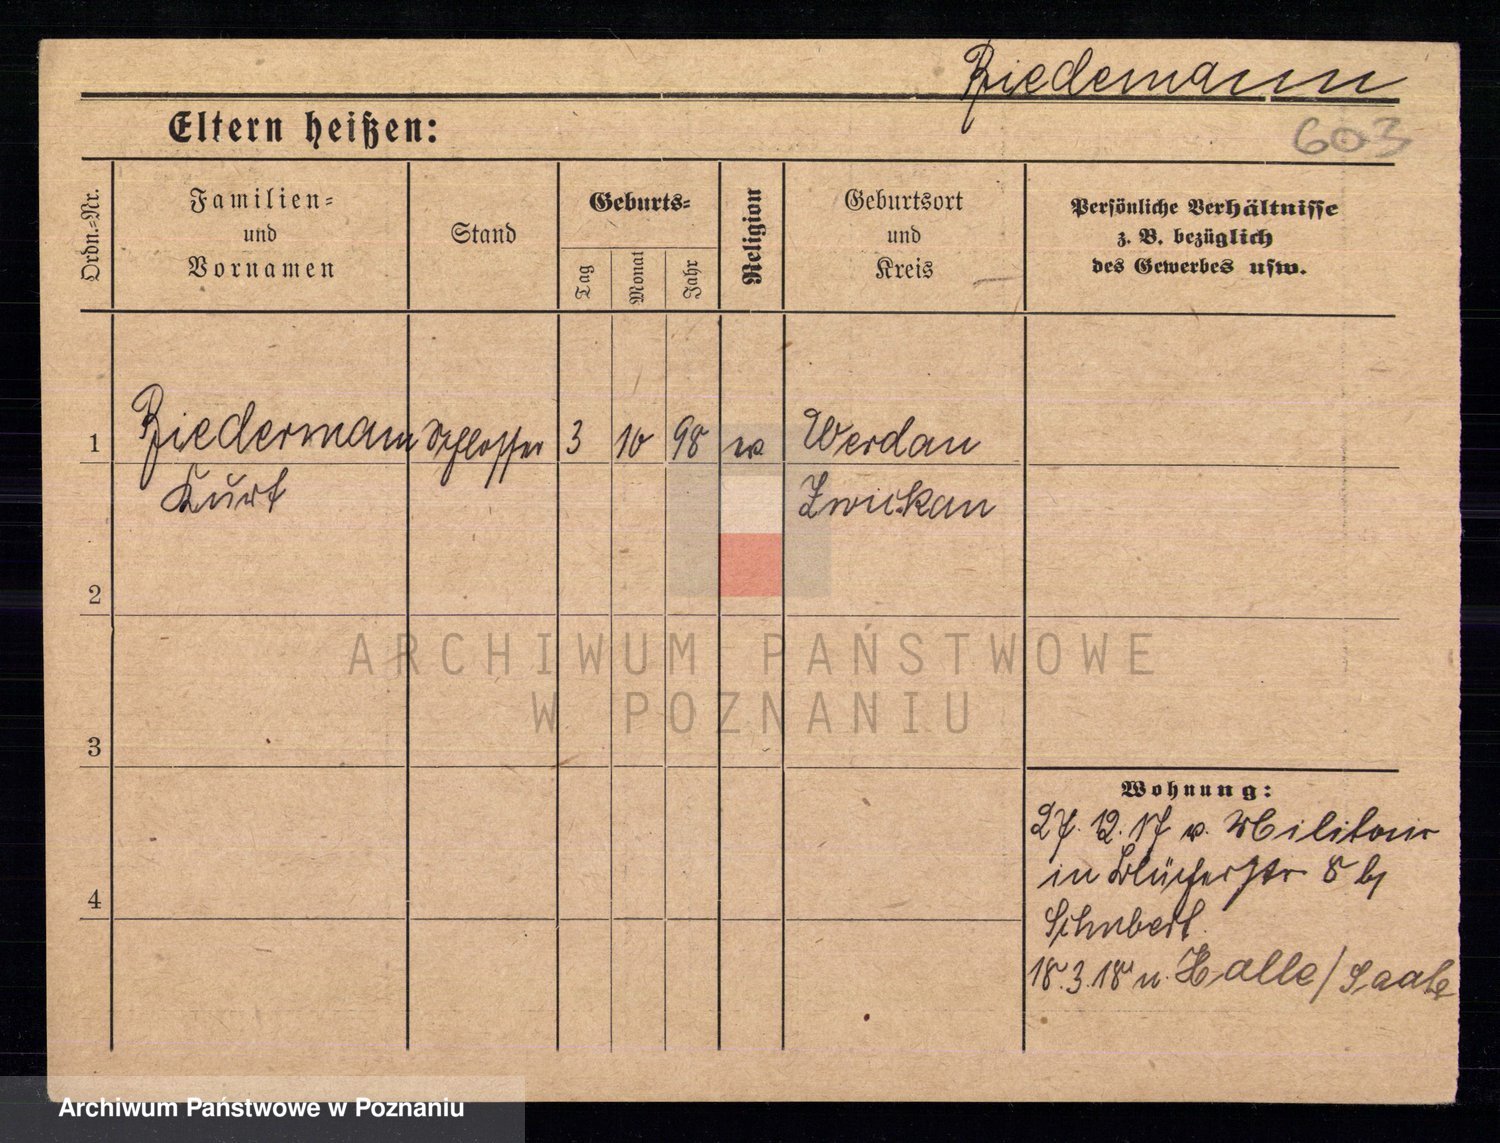 Biedemann
603
Eltern heißen:
Ordn.-Nr.
Familien-
und
Vornamen
Stand
Geburts-
Tag
Monat
Jahr
Religion
Geburtsort
und
Kreis
Persönliche Verhältnisse
z. B. bezüglich
des Gewerbes usw.
1 Biedermann Schlosser 3 10 98 ev Werdau
Kurt Zwickau
2
3
4
Wohnung:
27. 12. 17 v. Militair
in Blücherstr 8 b/
Schubert.
18. 3. 18 n. Halle/Saale
ARCHIWUM PAŃSTWOWE
W POZNANIU
Archiwum Państwowe w Poznaniu